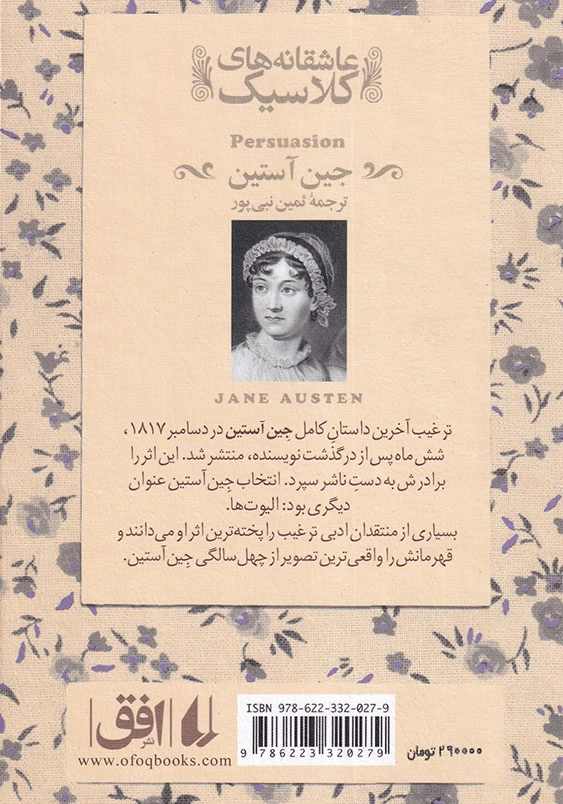 عاشقانه‌های
کلاسیک
Persuasion
جین آستین
ترجمهٔ ثمین نبی‌پور
JANE AUSTEN
ترغیب آخرین داستانِ کامل جِین آستین در دسامبر ۱۸۱۷،
شش ماه پس از درگذشت نویسنده، منتشر شد. این اثر را
برادرش به دستِ ناشر سپرد. انتخاب جِین آستین عنوان
دیگری بود: الیوت‌ها.
بسیاری از منتقدان ادبی ترغیب را پخته‌ترین اثر او می‌دانند و
قهرمانش را واقعی‌ترین تصویر از چهل‌سالگی جِین آستین.
ISBN 978-622-332-027-9
9 786223 320279
نشر افق
www.ofoqbooks.com
۲۹۰۰۰۰ تومان